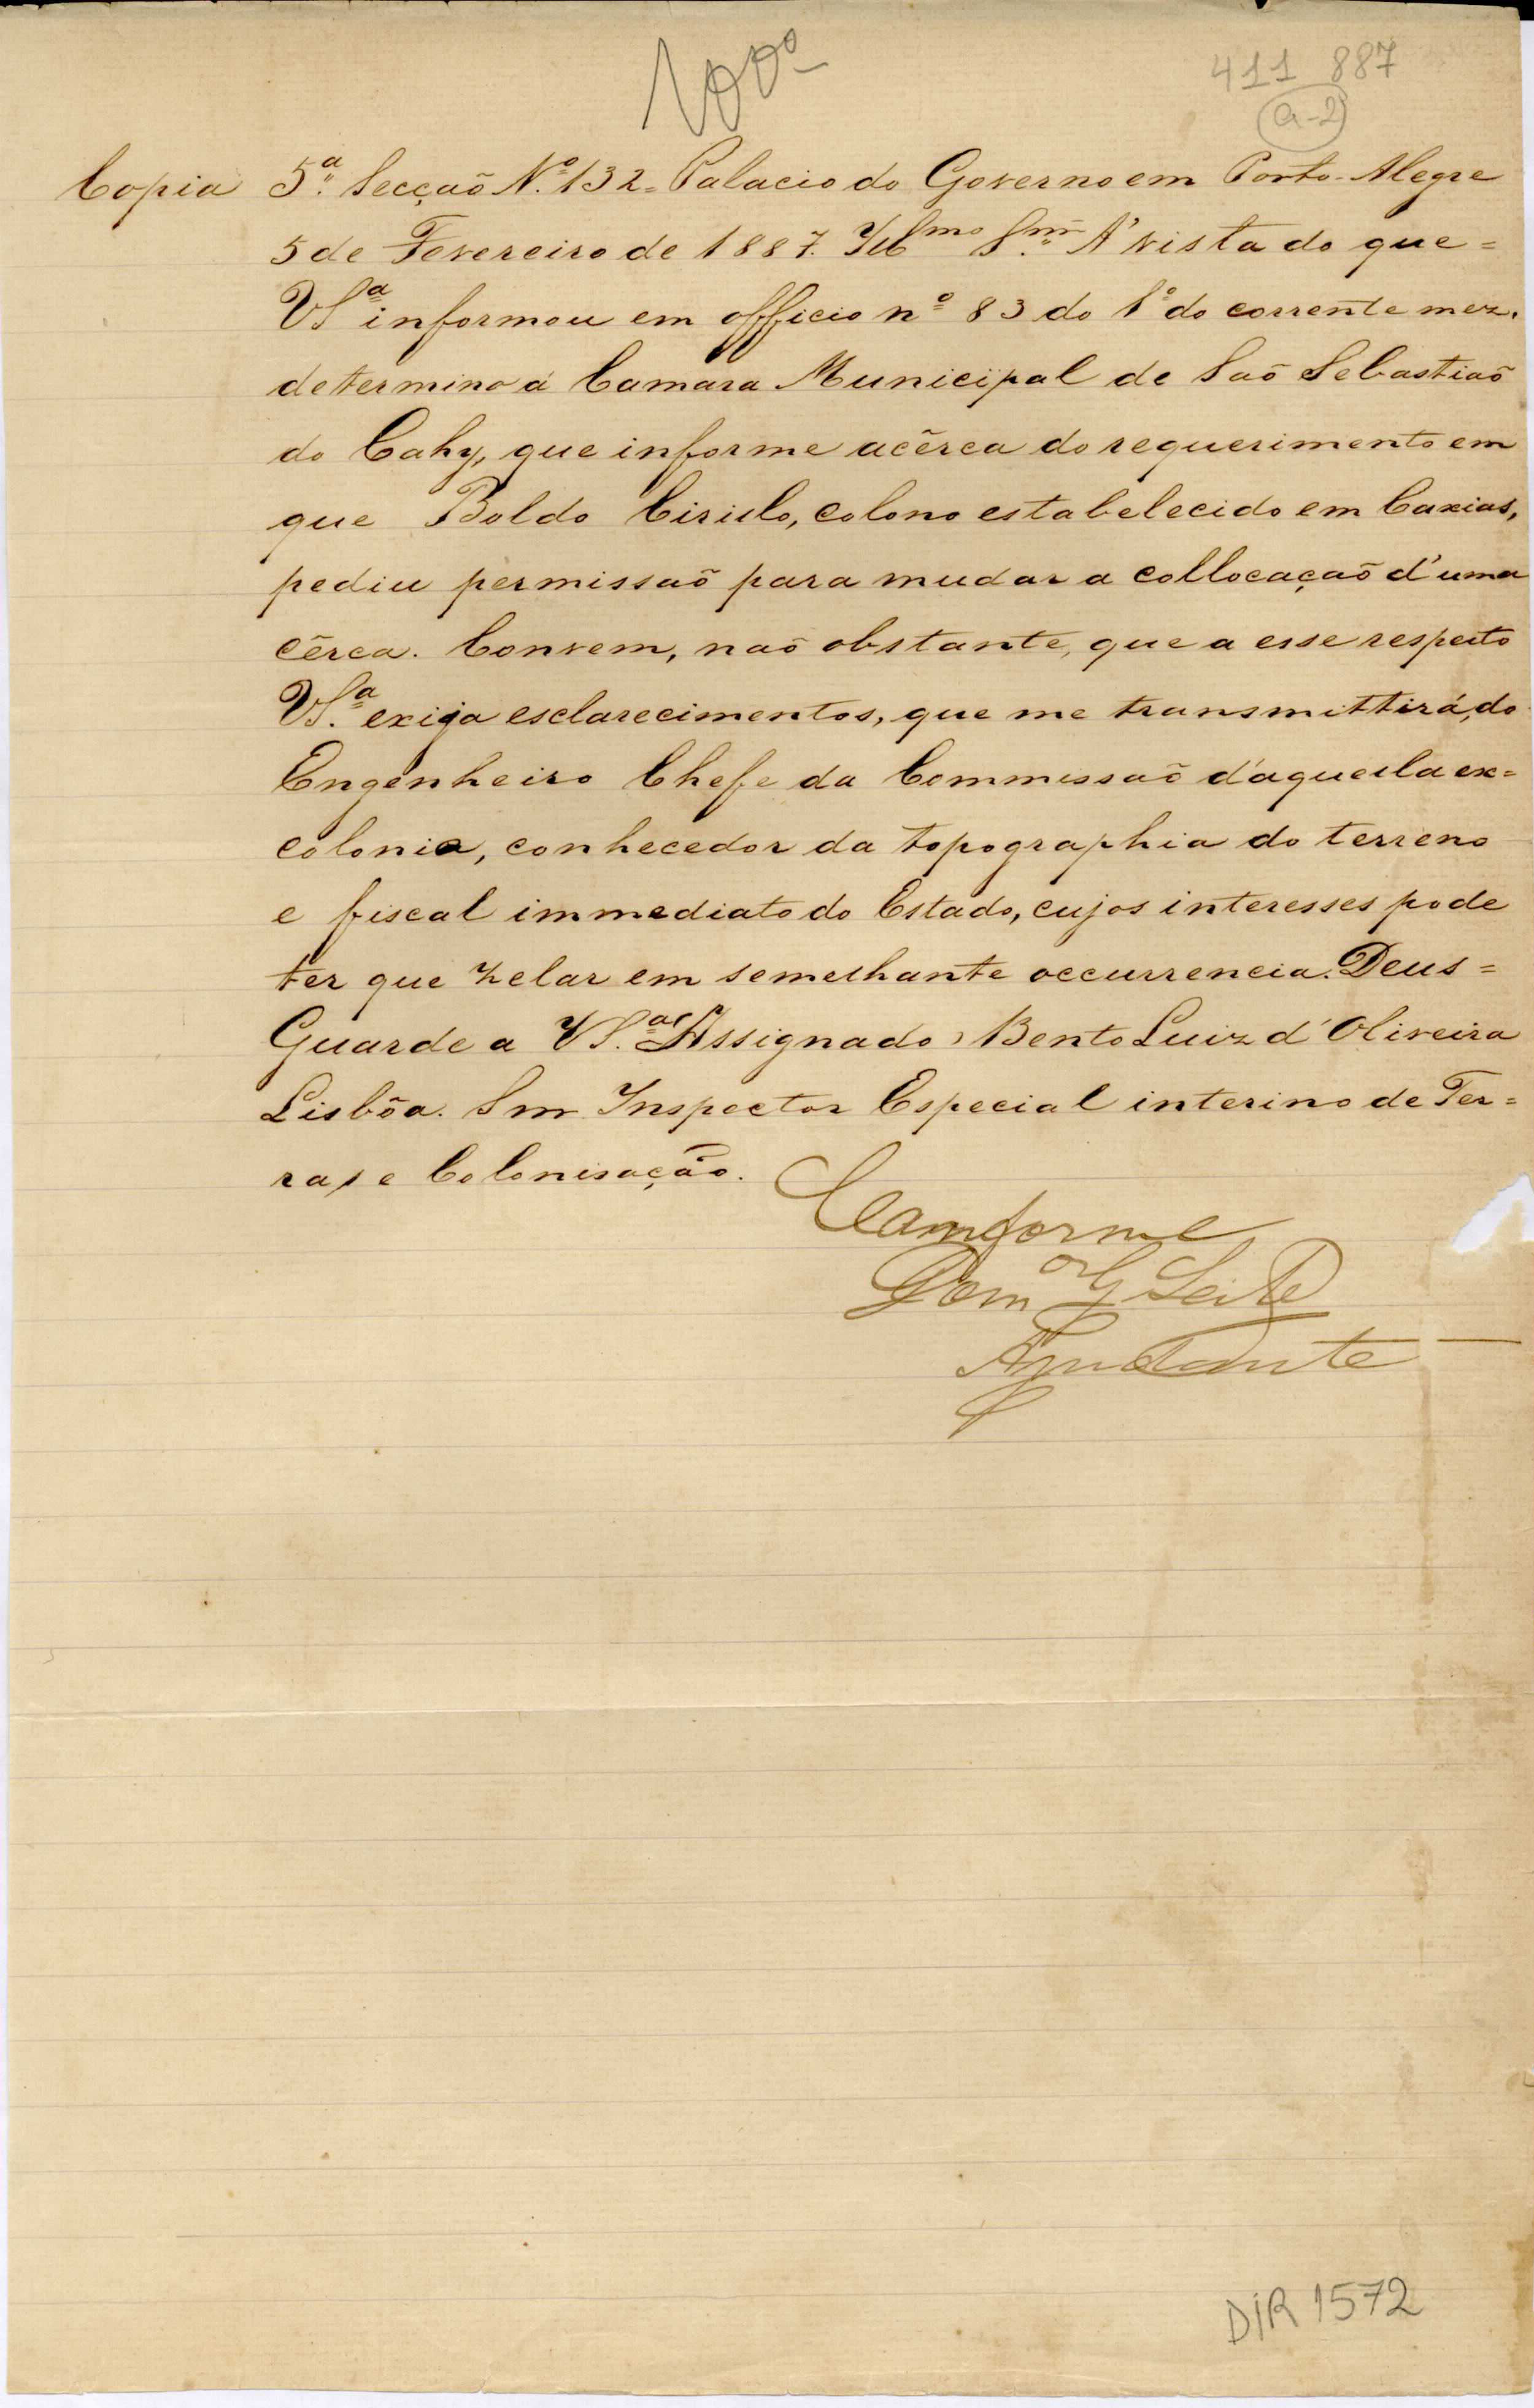 100º
411 887
a-2
Copia 5ª Secçaõ N.º 132 = Palacio do Governo em Porto-Alegre
5 de Fevereiro de 1887. Illmo Snr. A' vista do que =
VSª informou em officio nº 83 do 1º do corrente mez.
determino á Camara Municipal de Saõ Sebastiaõ
do Cahy, que informe acêrca do requerimento em
que Boldo Cirillo, colono estabelecido em Caxias,
pediu permissaõ para mudar a collocaçaõ d'uma
cêrca. Convem, naõ obstante, que a esse respeito
VS.ª exija esclarecimentos, que me transmittirá, do
Engenheiro Chefe da Commissaõ d'aquella ex=
colonia, conhecedor da topographia do terreno
e fiscal immediato do Estado, cujos interesses pode
ter que zelar em semelhante occurrencia. Deus =
Guarde a VS.ª (Assignado) Bento Luiz d'Oliveira
Lisbôa. Snr Inspector Especial interino de Ter=
ras e Colonisação.
Comforme
Domos G Leite
Ajudante
DIR 1572